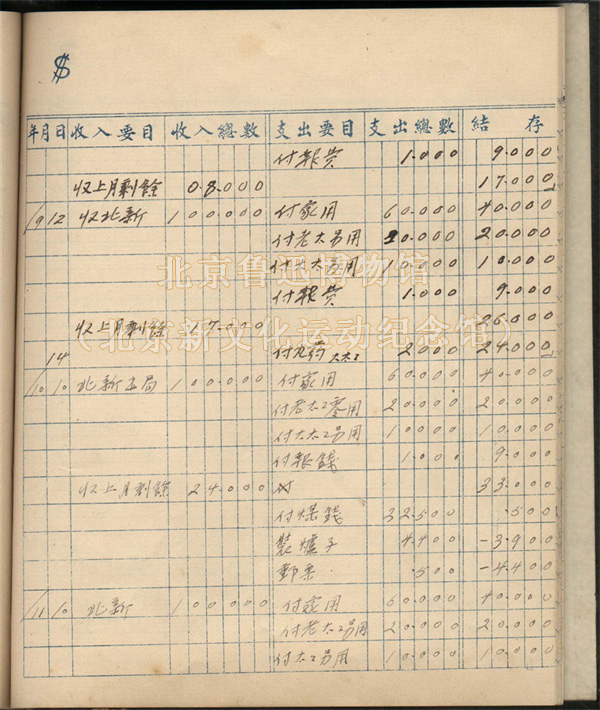 $
年 月 日 收入要目 收入總數 支出要目 支出總數 結存
付報費 1.000 9.000
收上月剩餘 08.000 17.000
/9 12 收北新 100.000 付家用 60.000 40.000
付老太另用 20.000 20.000
付大太另用 10.000 10.000
付報費 1.000 9.000
收上月剩餘 17.000 26.000
14 付丸药 太太 2000 24.000
/10 10 北新书局 100.000 付家用 60.000 40.000
付老太〻零用 20.000 20.000
付大太〻另用 10000 10.000
付報錢 1.000 9.000
收上月剩餘 24.000 付 33.000
付煤錢 32.500 .500
裝爐子 4.400 -3.900
郵票 .500 -4.400
/11 10 北新 100000 付家用 60.000 40.000
付老太〻另用 20.000 20.000
付太〻另用 10.000 10.000
北京鲁迅博物馆
（北京新文化运动纪念馆）